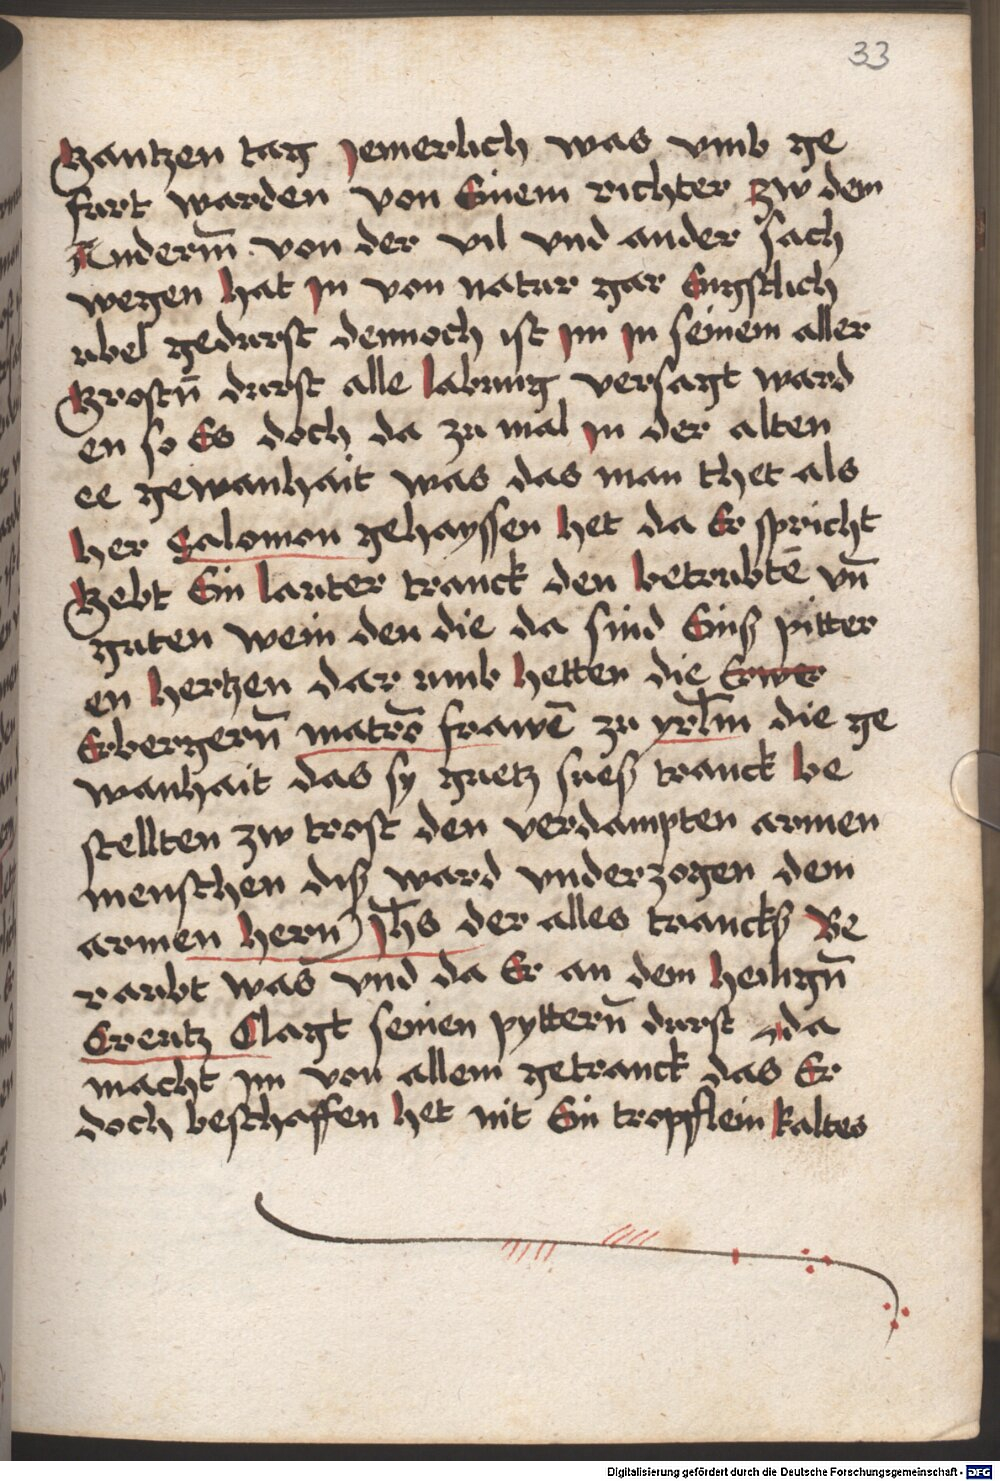 33
Gantzen tag jemerlich was vmb ge
furt warden von Einem richter zw dem
Anderm̄ von der vil vnd ander sach
wegen hat jn von natur gar Engstlich
ubel gedurst dennoch ist jm jn seinem aller
Grostn̄ durst alle labung versagt ward
en so Es doch da zu mal jn der alten
ee gewanhait was das man thet als
her Salomon gehayssen het da Er spricht
Gebt Ein lauter tranck den betrubtē vn̄
guten wein den die da sind Einß pitter
en hertzen dar umb hetten die Erwer
Erbergern̄ matrō frawē zu yrłm die ge
wanhait das sy guetz sueß tranck be
stellten zw trost den verdampten armen
menschen diß ward vnderzogen dem
armen hern jh̄s der alles trancks Be
raubt was vnd da Er an dem heilign̄
Creutz Clagt seinen pyttern̄ durst da
macht jm von allem getranck das Er
doch beschaffen het nit Ein tropflein kaltes
Digitalisierung gefördert durch die Deutsche Forschungsgemeinschaft - DFG